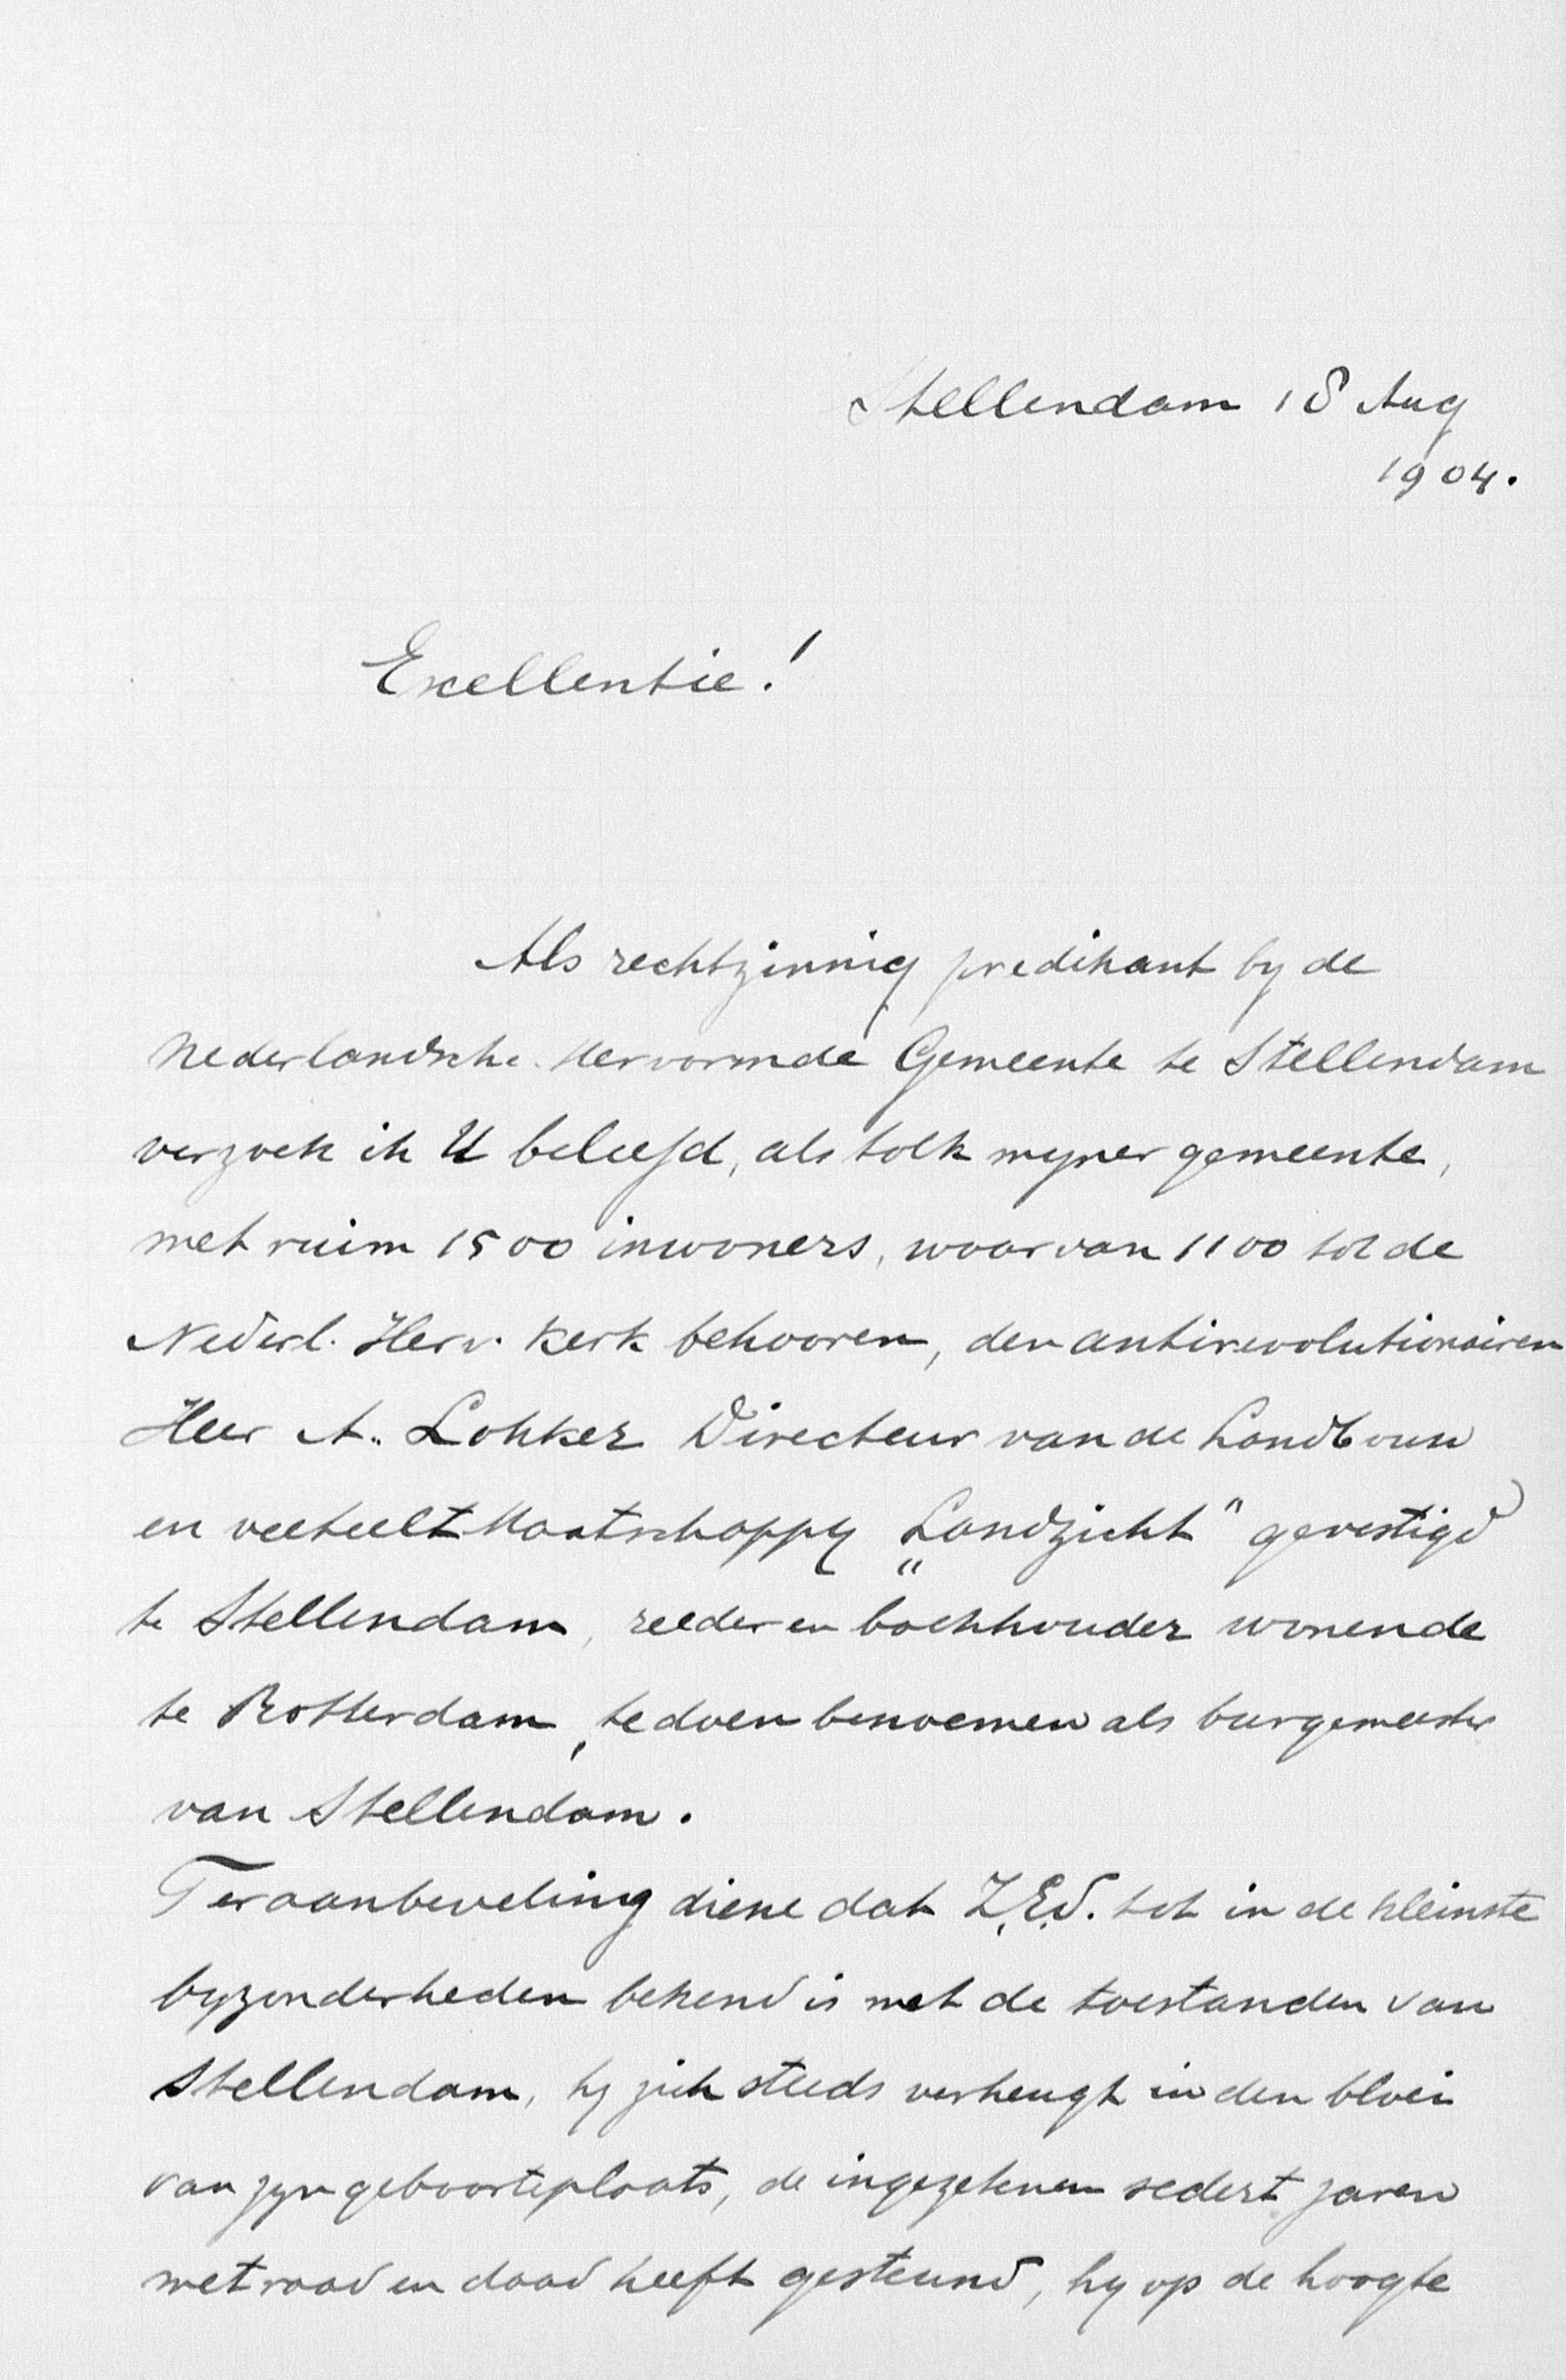 Stellendam 18 Aug
1904.
Excellentie!
Als rechtzinnig predikant by de
Nederlandsche Hervormde Gemeente te Stellendam
verzoek ik U beleefd, als tolk mijner gemeente,
met ruim 1500 inwoners, waarvan 1100 tot de
Nederl. Herv. Kerk behooren, den antirevolutionairen
Heer A. Lokker Directeur van de Landbouw
en veeteelt Maatschappij „Landzicht" gevestigd
te Stellendam, reeder en boekhouder wonende
te Rotterdam, te doen benoemen als burgemeester
van Stellendam.
Ter aanbeveling diene dat Z.Ed. tot in de kleinste
byzonderheden bekend is met de toestanden van
Stellendam, hy zich steeds verheugt in den bloei
van zyn geboorteplaats, de ingezetenen sedert jaren
met raad en daad heeft gesteund, hy op de hoogte